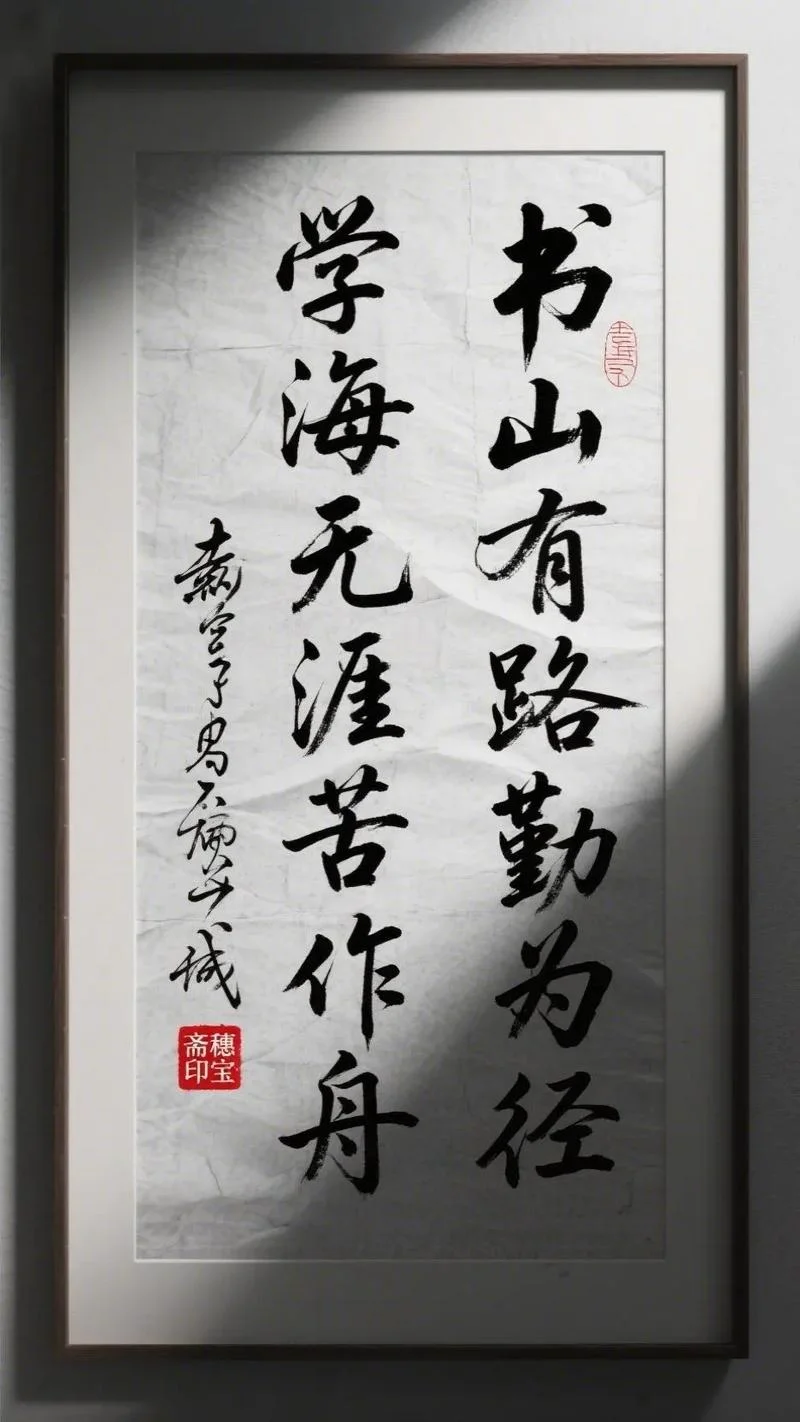 书山有路勤为径
学海无涯苦作舟
穗宝
斋印